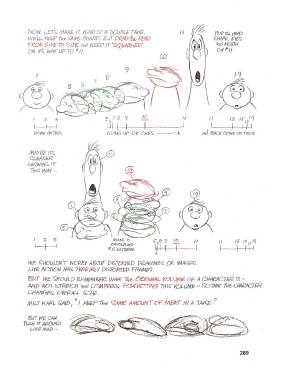 NOW LET'S MAKE IT KIND OF A DOUBLE TAKE.
WE'LL KEEP THE SAME CHARTS BUT DRAG THE HEAD
FROM SIDE TO SIDE and KEEP IT 'SQUASHED'
ON IT'S WAY UP TO #11.
11
POP THE HEAD
SHAPE, EYES
and MOUTH
ON #11
1
5
6
7
8
9
10
19
DOWN ON TWOS
GOING UP ON ONES
and BACK DOWN ON TWOS
MAYBE IT'S
CLEARER
SHOWING IT
THIS WAY -
MAKE 10
FAVOURING
#5 EXTREME
WE SHOULDN'T WORRY ABOUT DISTORTED DRAWINGS OR IMAGES.
LIVE ACTION HAS TERRIBLY DISTORTED FRAMES.
BUT WE SHOULD REMEMBER WHAT THE ORIGINAL VOLUME OF A CHARACTER IS -
AND NOT STRETCH and COMPRESS FORGETTING THIS VOLUME - SO THAT THE CHARACTER
CHANGES OVERALL SIZE.
MILT KAHL SAID, "I KEEP THE SAME AMOUNT OF MEAT IN A TAKE."
BUT WE CAN
PUSH IT AROUND
LIKE MAD -
289